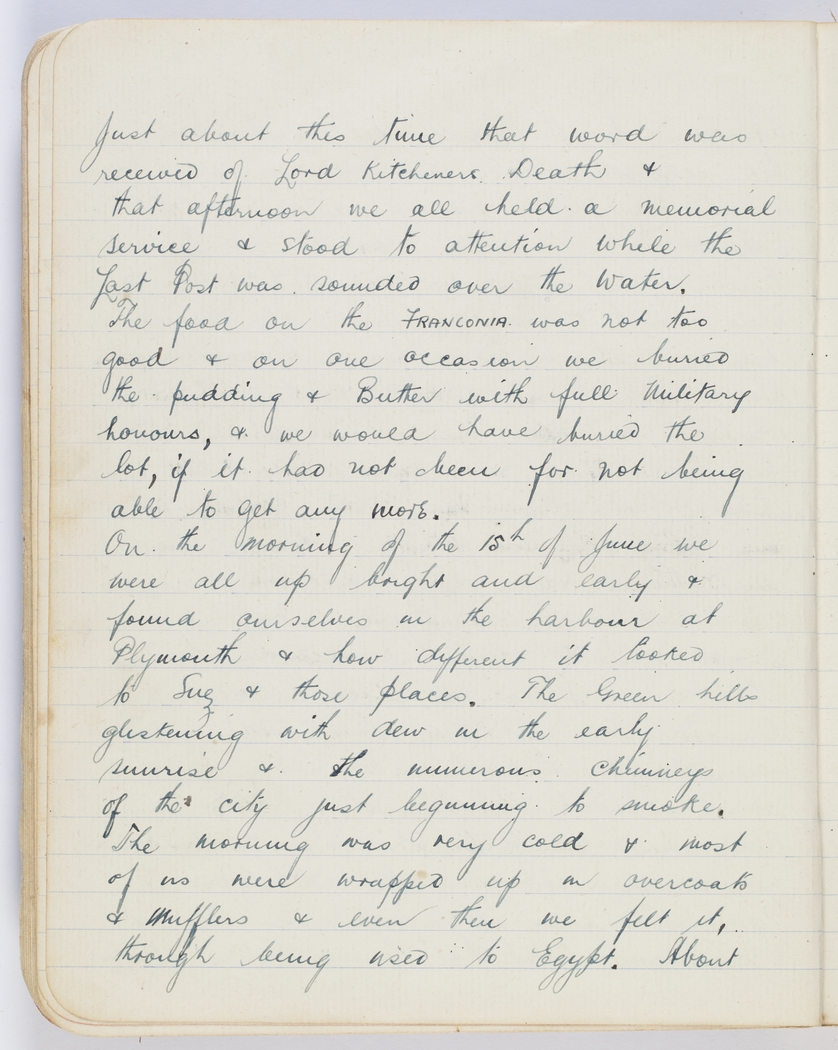 Just about this time that word was
received of Lord Kitcheners Death &
that afternoon we all held a memorial
service & stood to attention while the
Last Post was sounded over the Water.
The food on the FRANCONIA was not too
good & on one occasion we buried
the pudding & Butter with full Military
honours, & we would have buried the
lot, if it had not been for not being
able to get any more.
On the morning of the 15th of June we
were all up bright and early &
found ourselves in the harbour at
Plymouth & how different it looked
to Suez & those places. The Green hills
glistening with dew in the early
sunrise & the numerous chimneys
of the city just beginning to smoke.
The morning was very cold & most
of us were wrapped up in overcoats
& Mufflers & even then we felt it,
through being used to Egypt. About